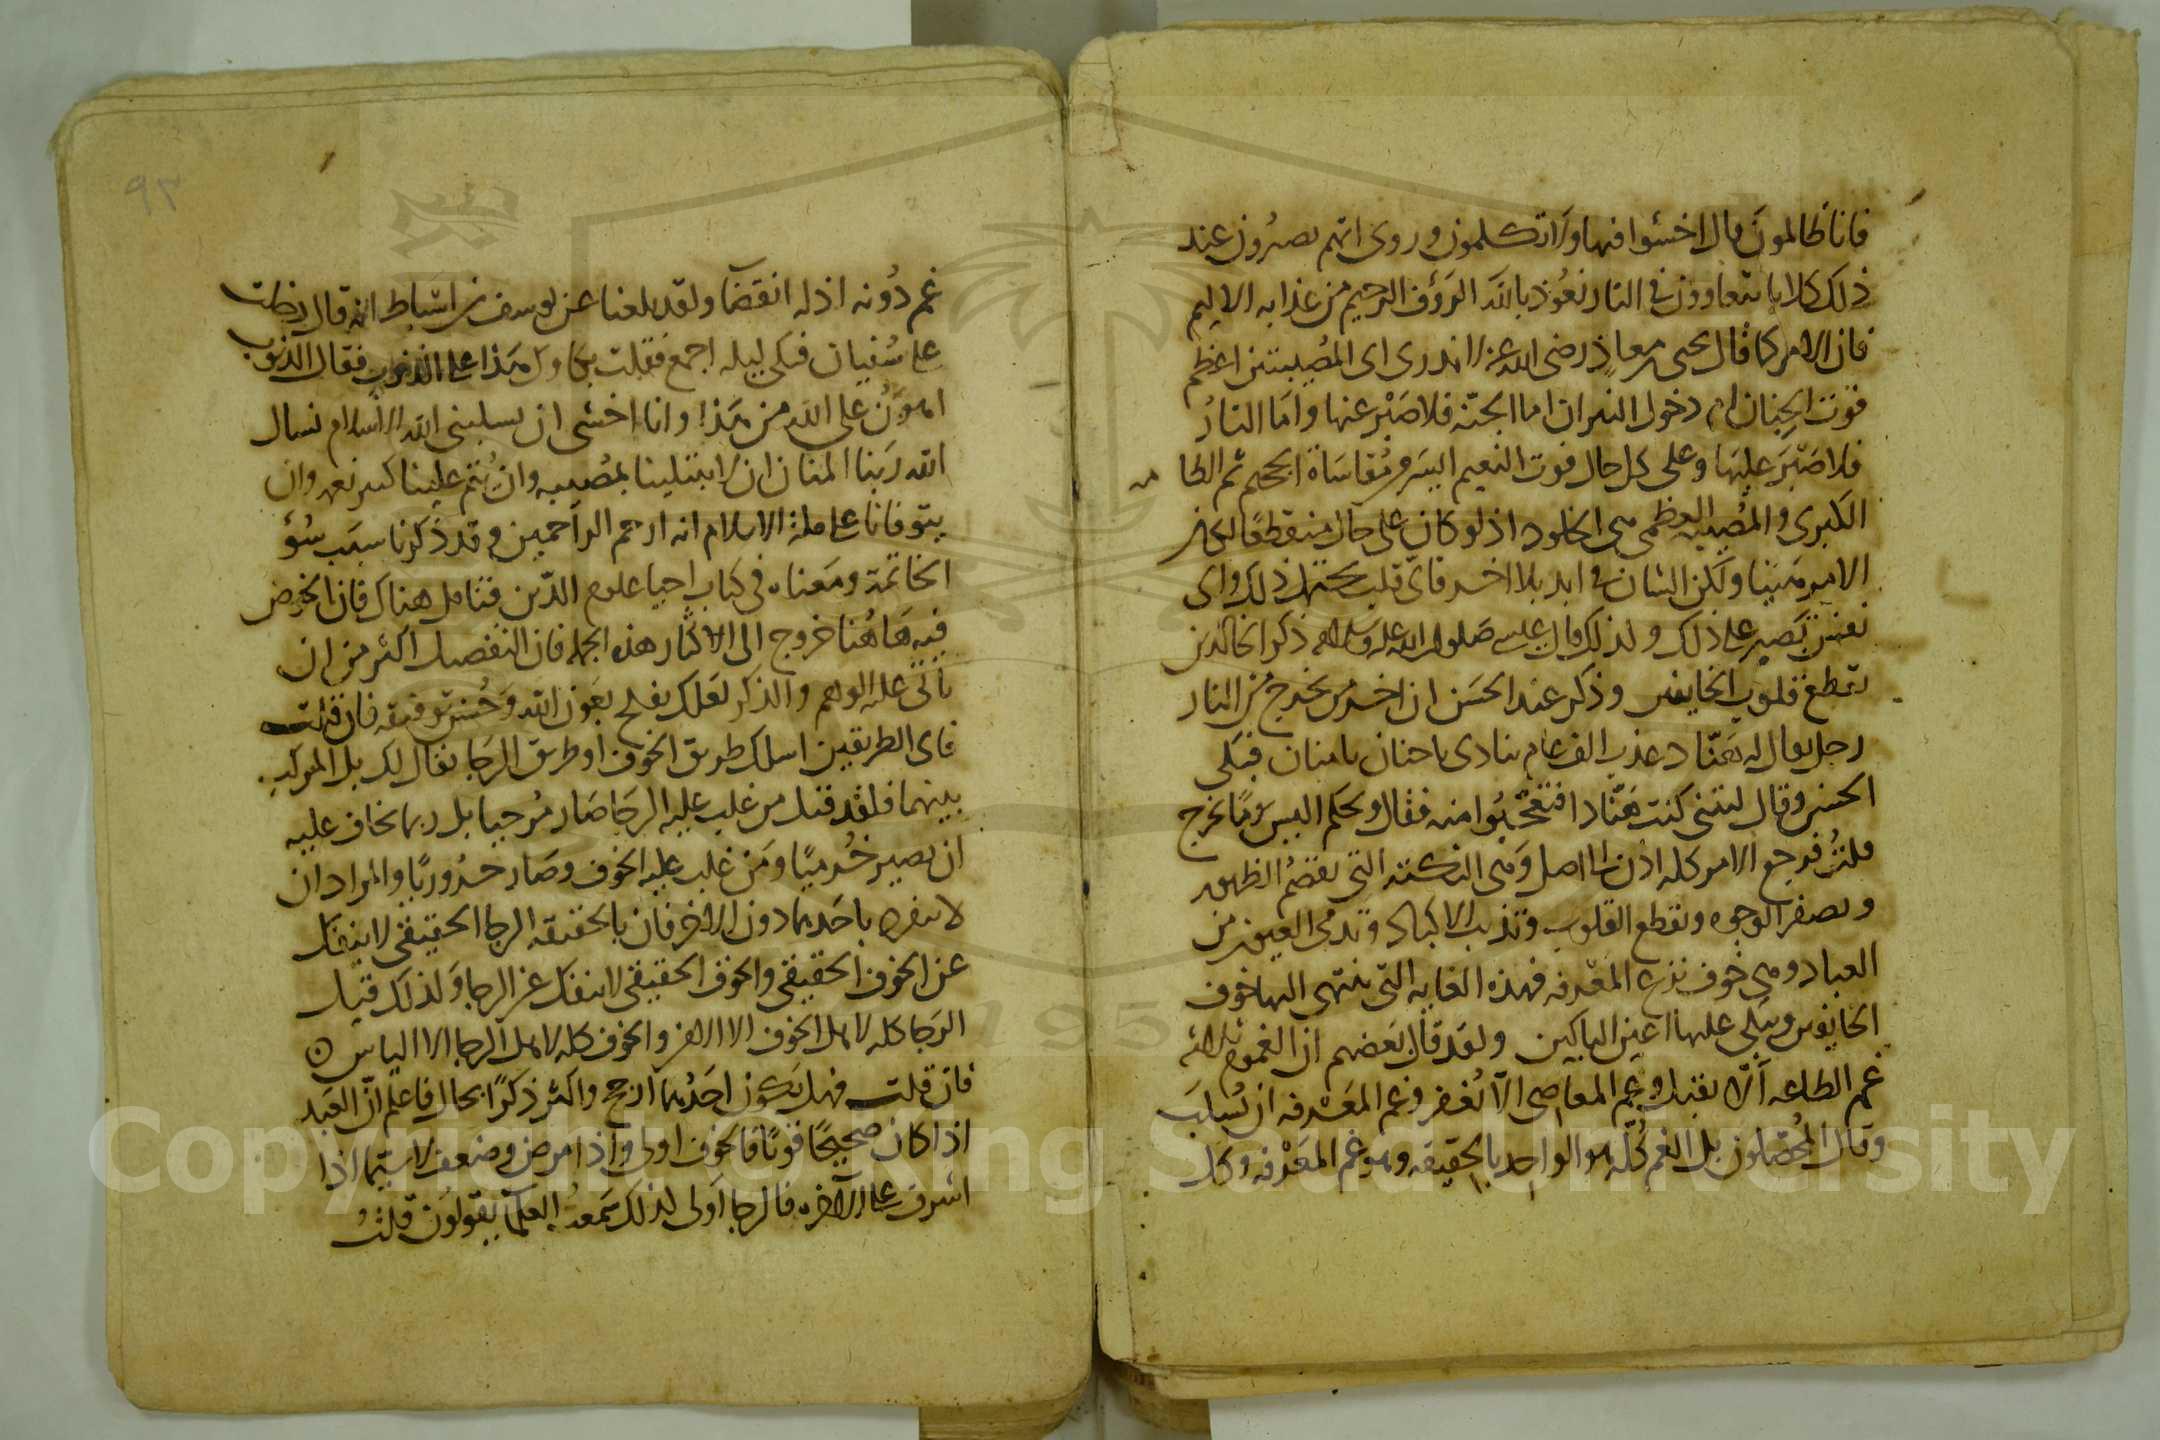 فانا ظالمون قال اخسئوا فيها ولا تكلمون وروى انهم يصيرون عند
ذلك كلابا يتعاوون في النار نعوذ بالله الرؤف الرحيم من عذابه الاليم
فان الامر كما قال يحيى بن معاذ رضى الله عنه لا ندرى اى المصيبتين اعظم
فوت الجنان ام دخول النيران اما الجنة فلا صبر عنها واما النار
فلا صبر عليها وعلى كل حال فوت النعيم ايسر من مقاساة الجحيم ثم الطا مه
الكبرى والمصيبه العظمى هى الخلود اذ لو كان على حال منقطعا لكان
الامر هينا ولكن الشان في ابد بلا اخر فاى قلب يحتمل ذلك واى
نفس تصبر على ذلك ولذلك قال عيسى صلوات الله عليه وسلامه ذكر الخالدين
يقطع قلوب الخايفين وذكر عند الحسن ان اخر من يخرج من النار
رجل يقال له هناد عذب الف عام ينادى يا حنان يا منان فبكى
الحسن وقال ليتنى كنت هنادا فتعجبوا منه فقال ويحكم اليس يوما يخرج
قلت فرجع الامر كله اذن الى اصل وهى النكتة التى تقصم الظهور
وتصفر الوجوه وتقطع القلوب وتذيب الاكباد وتدمى العيون من
العباد وهى خوف نزع المعرفه فهذه الغايه التى ينتهى اليها خوف
الخايفين ويبكى عليها اعين الباكين ولقد قال بعضهم ان الغموم ثلاثه
غم الطاعه الا يقبل وغم المعاصى الا تغفر وغم المعرفه ان تسلب
وقال المخلصون بل الغم كله هو الواحد بالحقيقه وهو غم المعرفه وكل
٩٢
غم دونه اذ له انقضا ولقد بلغنا عن يوسف بن اسباط انه قال دخلت
على سفيان فبكى ليله اجمع فقلت بكاوك هذا على الذنوب فقال الذنوب
اهون على الله من هذا وانا اخشى ان يسلبنى الله الاسلام نسال
الله ربنا المنان ان لا يبتلينا بمصيبه وان يتم علينا كبير نعمه وان
يتوفانا على ملة الاسلام انه ارحم الراحمين وقد ذكرنا سبب سؤ
الخاتمة ومعناه في كتاب احيا علوم الدين فتامل هناك فان الخوض
فيه هاهنا خروج الى الاكثار هذه الجمله فان التفصيل اكثر من ان
ياتى عليه الوهم والذكر لعلك تفلح بعون الله وحسن توفيقه فان قلت
فاى الطريقين اسلك طريق الخوف او طريق الرجا يقال لك بل المركب
بينهما فلقد قيل من غلب عليه الرجا صار مرجيا بل ربما يخاف عليه
ان يصير خرميا ومن غلب عليه الخوف وصار حروريا والمراد ان
لا ينفرد باحدهما دون الاخر فان بالحقيقه الرجا الحقيقى لا ينفك
عن الخوف الحقيقى والخوف الحقيقى لا ينفك عن الرجا ولذلك قيل
الرجا كله لاهل الخوف الا الامن والخوف كله لاهل الرجا الا الياس
فان قلت فهل يكون احدهما ارجح واكثر ذكرا بحال فاعلم ان العبد
اذا كان صحيحا قويا فالخوف اولى واذا مرض وضعف لا سيما اذا
اشرف على الاخره فالرجا اولى لذلك سمعت العلما يقولون قلت
Copyright © King Saud University
195